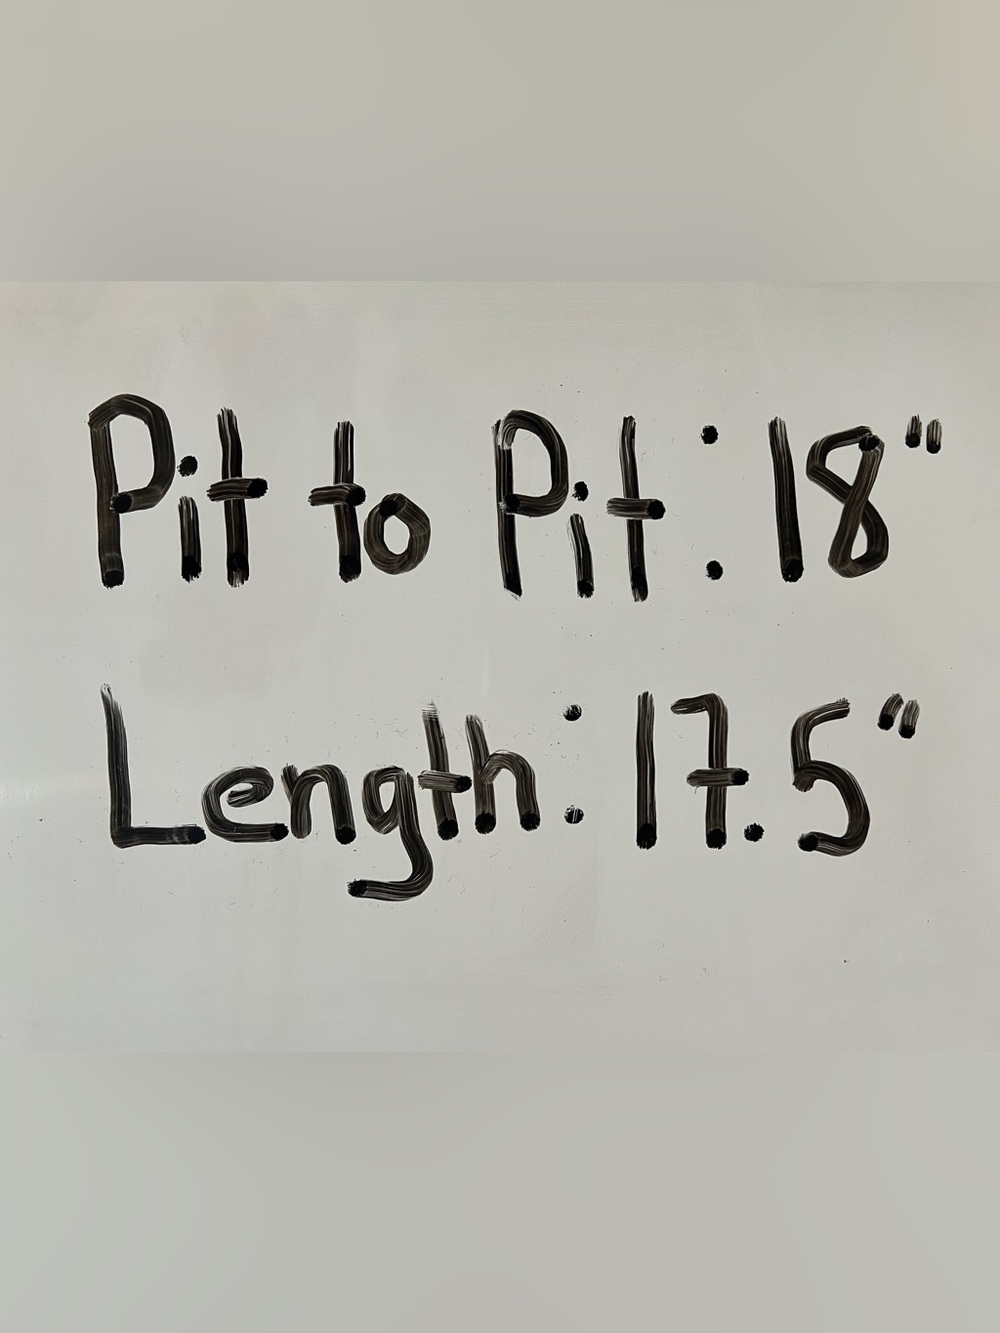 Pit to Pit: 18"
Length: 17.5"